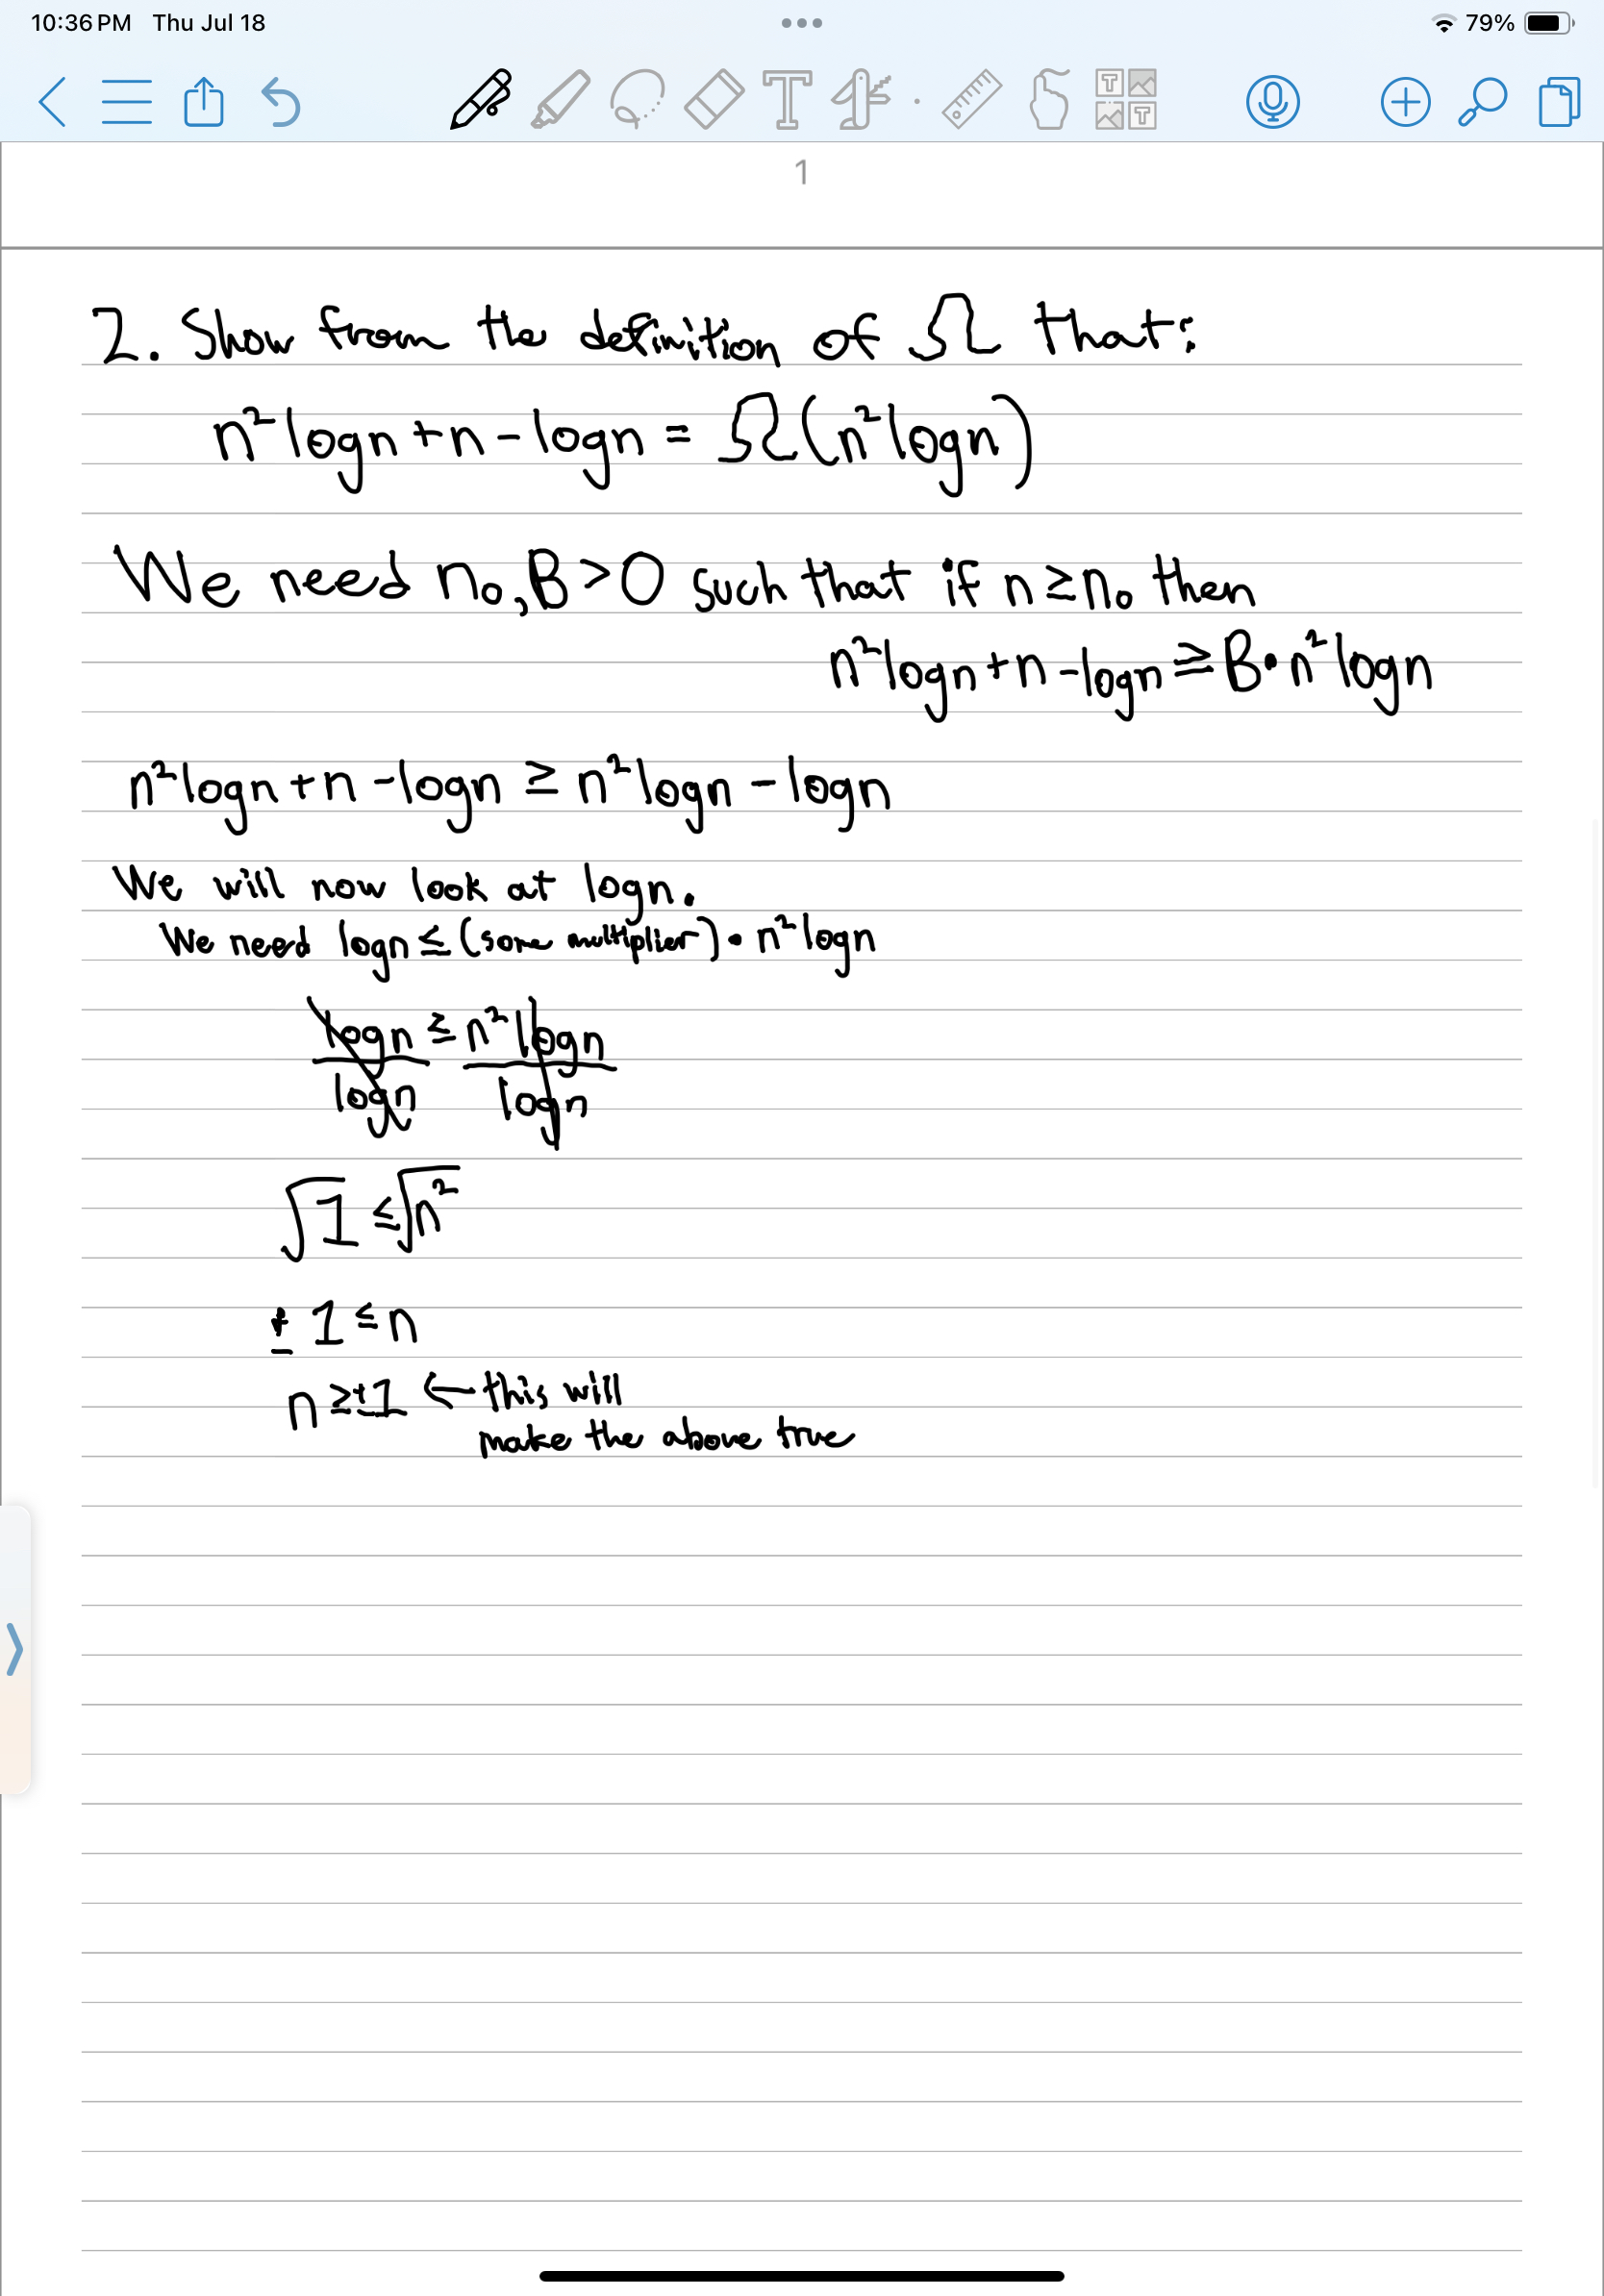 10:36 PM Thu Jul 18
79%
1
2. Show from the definition of Ω that:
n² logn + n - logn = Ω(n² logn)
We need n₀, B > 0 such that if n ≥ n₀ then
n² logn + n - logn ≥ B • n² logn
n² logn + n - logn ≥ n² logn - logn
We will now look at logn.
We need logn ≤ (some multiplier) • n² logn
logn/logn ≤ n² logn/logn
√1 ≤ √n²
± 1 ≤ n
n ≥ ±1 ← this will
make the above true